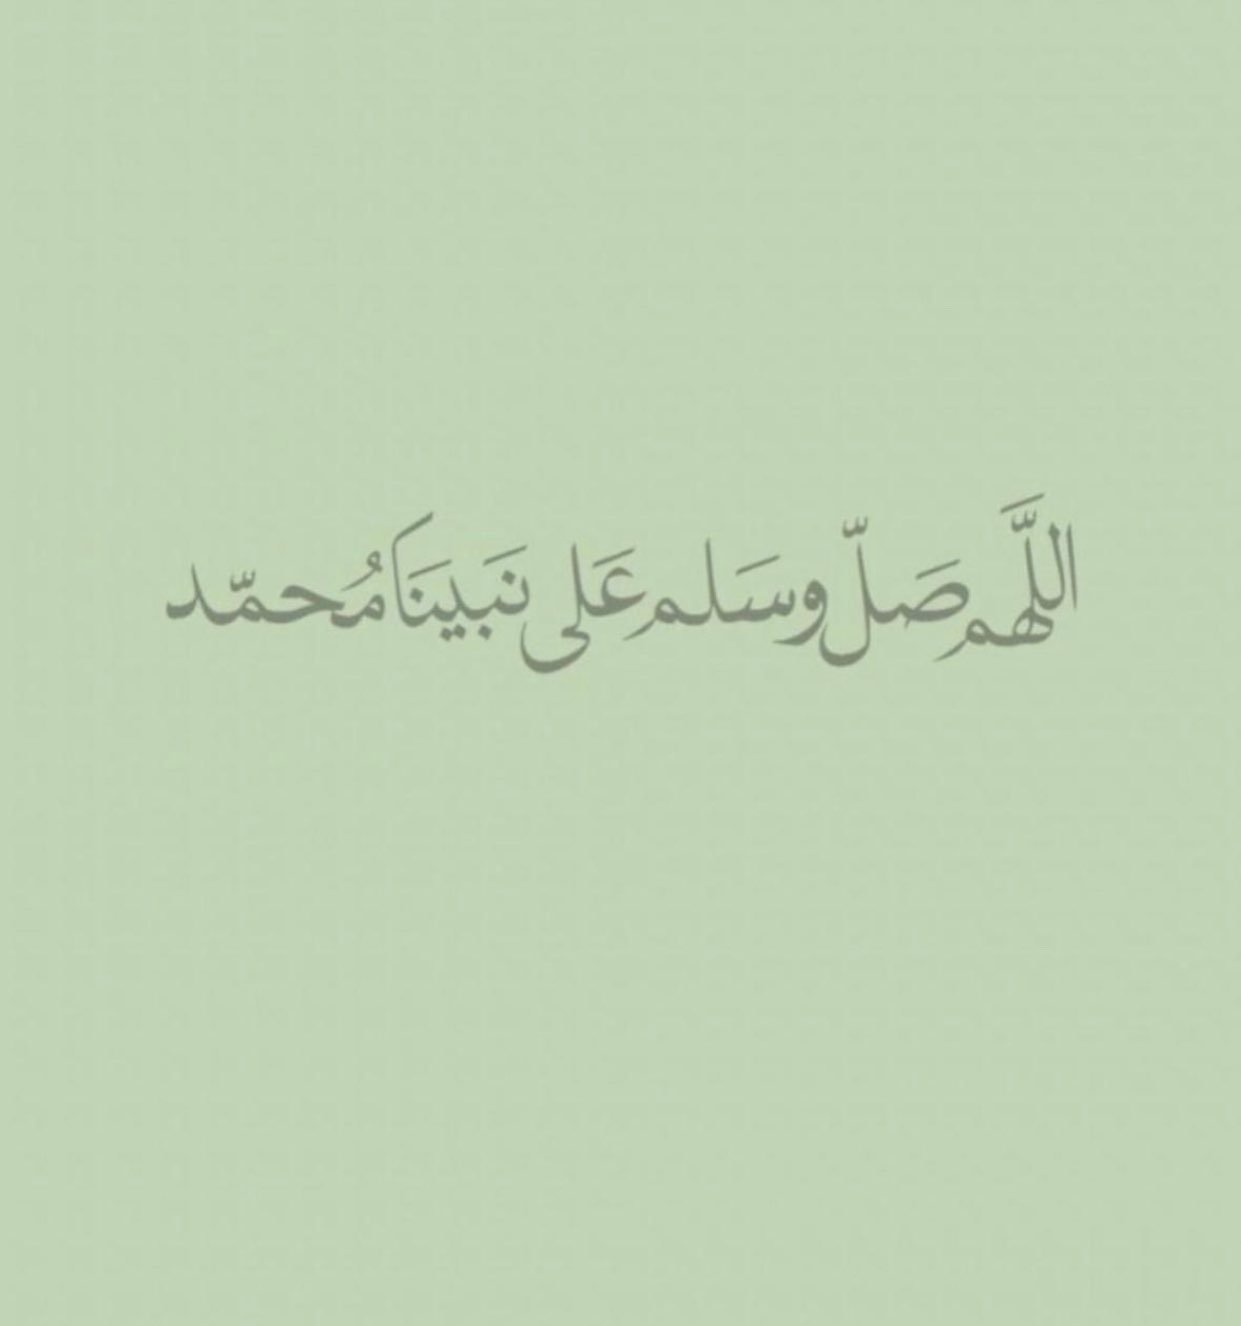 اللَّهم صَلّ وسَلم عَلى نَبينَا مُحمّد